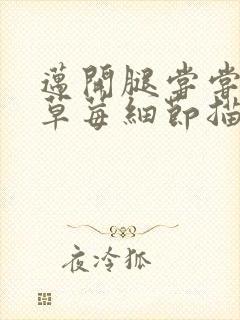 邁開腿嘗嘗
草莓細節描
夜冷狐